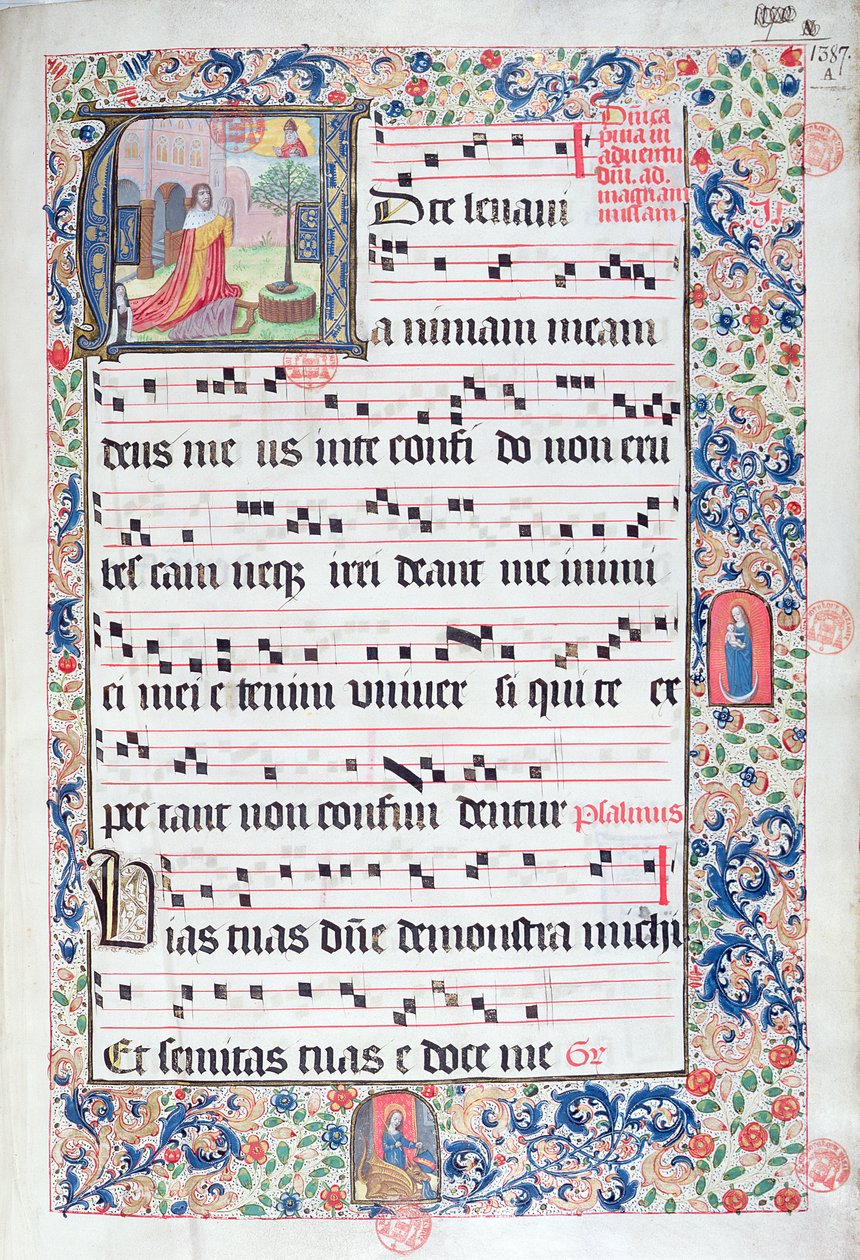 1387.
A
Dñica
p̄ma in
aduentu
dñi. ad.
magnam
missam.
AD te leuaui
a nimam meam
deus me us in te confi do non eru
bes cam neqz irri deant me inimi
ci mei e tenim vniuer si qui te ex
pec tant non confun dentur Psalmus
Vias tuas dñe demonstra michi
Et semitas tuas e doce me Gr